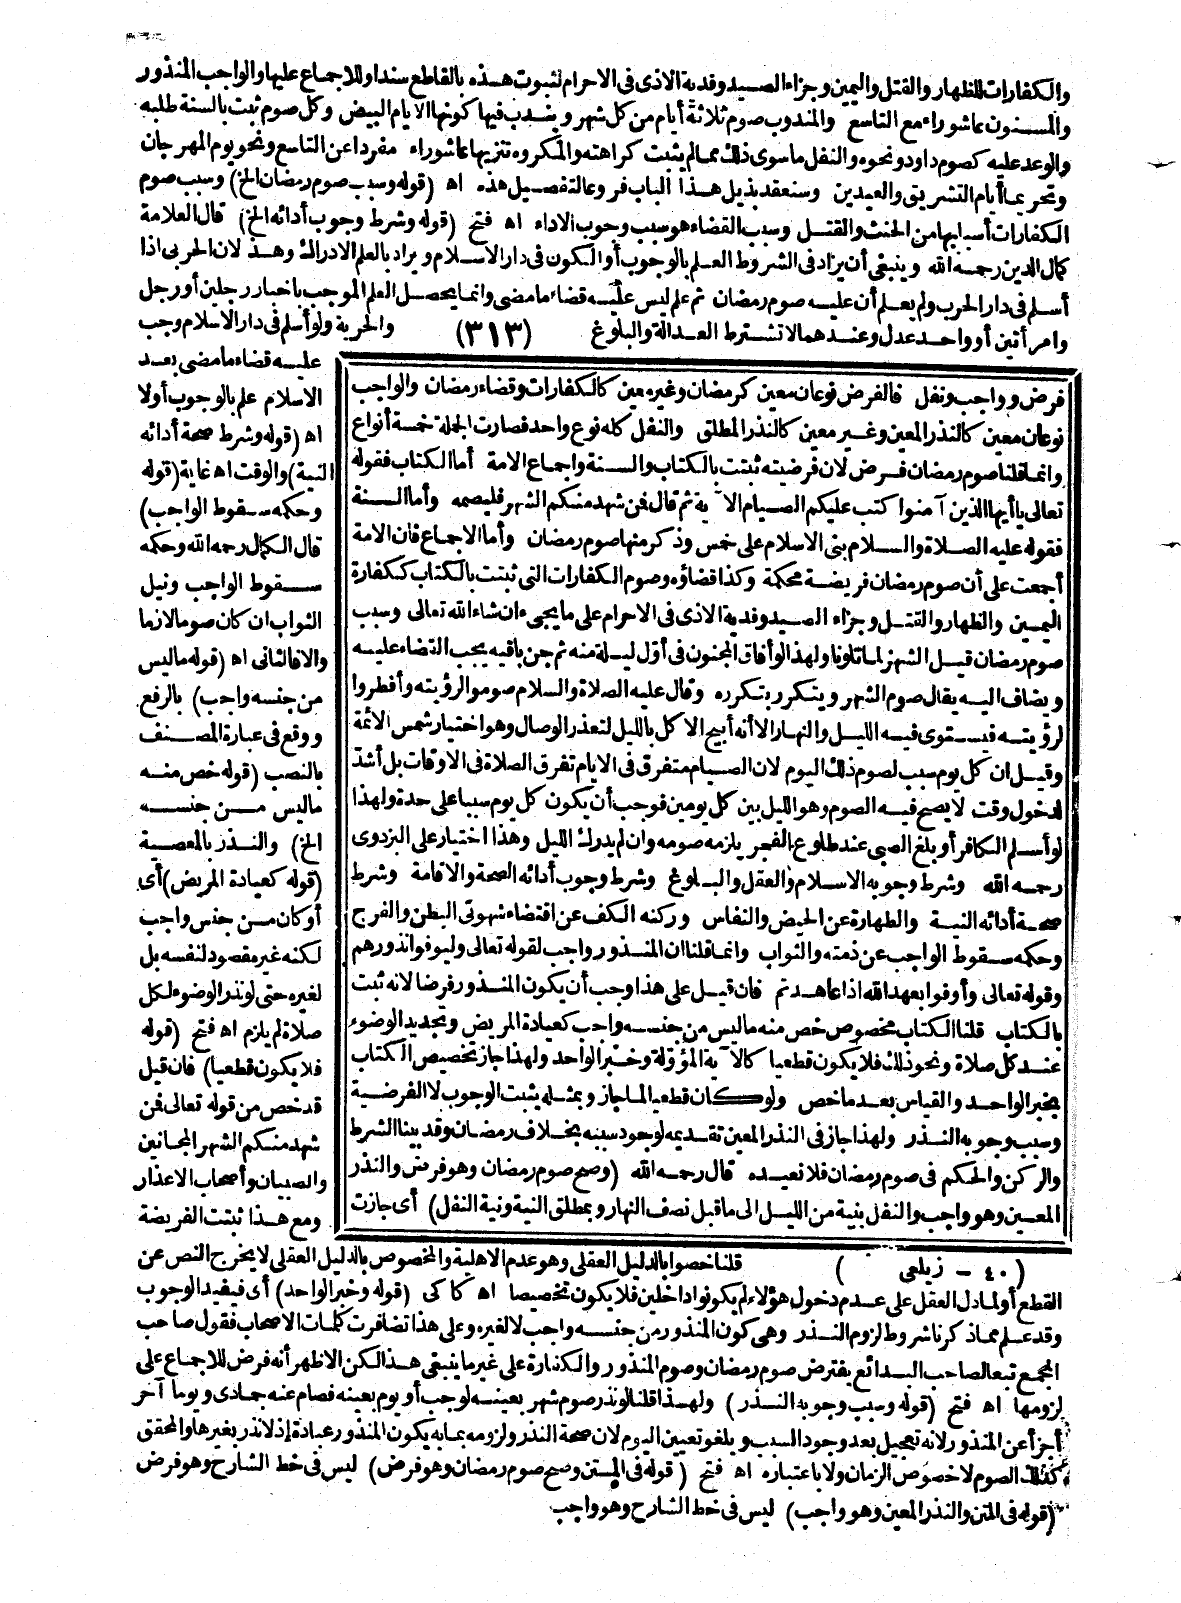 والكفارات للظهار والقتل واليمين وجزاء الصيد وفدية الاذى فى الاحرام لثبوت هذه بالقاطع سندا وللاجماع عليها والواجب المنذور
والمسنون عاشوراء مع التاسع والمندوب صوم ثلاثة أيام من كل شهر ويندب فيها كونها الايام البيض وكل صوم ثبت بالسنة طلبه
والوعد عليه كصوم داود ونحوه والنفل ما سوى ذلك مما لم يثبت كراهته والمكروه تنزيها عاشوراء مفردا عن التاسع ونحو يوم المهرجان
وتحريما أيام التشريق والعيدين وسنعقد بذيل هذا الباب فروعا لتفصيل هذه اه (قوله وسبب صوم رمضان الخ) وسبب صوم
الكفارات أسبابها من الحنث والقتل وسبب القضاء هو سبب وجوب الاداء اه فتح (قوله وشرط وجوب أدائه الخ) قال العلامة
كمال الدين رحمه الله وينبغى أن يزاد فى الشروط العلم بالوجوب أو الكون فى دار الاسلام ويراد بالعلم الادراك وهذا لان الحربى اذا
أسلم فى دار الحرب ولم يعلم أن عليه صوم رمضان ثم علم ليس عليه قضاء ما مضى وانما يحصل العلم الموجب باخبار رجلين أو رجل
وامرأتين أو واحد عدل وعندهما لا تشترط العدالة والبلوغ (٣١٣) والحرية ولو أسلم فى دار الاسلام وجب
عليه قضاء ما مضى بعد
الاسلام علم بالوجوب أولا
اه (قوله وشرط صحة أدائه
النية) والوقت اه غاية (قوله
وحكمه سقوط الواجب)
قال الكمال رحمه الله وحكمه
سقوط الواجب ونيل
الثواب ان كان صوما لازما
والا فالثانى اه (قوله ما ليس
من جنسه واجب) بالرفع
ووقع فى عبارة المصنف
بالنصب (قوله خص منه
ما ليس من جنسه
الخ) والنذر بالمعصية
(قوله كعيادة المريض) أى
أو كان من جنس واجب
لكنه غير مقصود لنفسه بل
لغيره حتى لو نذر الوضوء لكل
صلاة لم يلزم اه فتح (قوله
فلا يكون قطعيا) فان قيل
قد خص من قوله تعالى فمن
شهد منكم الشهر المجانين
والصبيان وأصحاب الاعذار
ومع هذا ثبتت الفريضة
فرض وواجب ونفل فالفرض نوعان معين كرمضان وغير معين كالكفارات وقضاء رمضان والواجب
نوعان معين كالنذر المعين وغير معين كالنذر المطلق والنفل كله نوع واحد فصارت الجملة خمسة أنواع
وانما قلنا صوم رمضان فرض لان فرضيته ثبتت بالكتاب والسنة واجماع الامة أما الكتاب فقوله
تعالى يا أيها الذين آمنوا كتب عليكم الصيام الآية ثم قال فمن شهد منكم الشهر فليصمه وأما السنة
فقوله عليه الصلاة والسلام بنى الاسلام على خمس وذكر منها صوم رمضان وأما الاجماع فان الامة
أجمعت على أن صوم رمضان فريضة محكمة وكذا قضاؤه وصوم الكفارات التى ثبتت بالكتاب ككفارة
اليمين والظهار والقتل وجزاء الصيد وفدية الاذى فى الاحرام على ما يجىء ان شاء الله تعالى وسبب
صوم رمضان قيل الشهر لما تلونا ولهذا لو أفاق المجنون فى أول ليلة منه ثم جن باقيه يجب القضاء عليه
ويضاف اليه يقال صوم الشهر ويتكرر بتكرره وقال عليه الصلاة والسلام صوموا لرؤيته وأفطروا
لرؤيته فيستوى فيه الليل والنهار الا أنه أبيح الاكل بالليل لتعذر الوصال وهو اختيار شمس الائمة
وقيل ان كل يوم سبب لصوم ذلك اليوم لان الصيام متفرق فى الايام تفرق الصلاة فى الاوقات بل أشد
لدخول وقت لا يصح فيه الصوم وهو الليل بين كل يومين فوجب أن يكون كل يوم سببا على حدة ولهذا
لو أسلم الكافر أو بلغ الصبى عند طلوع الفجر يلزمه صومه وان لم يدرك الليل وهذا اختيار على البزدوى
رحمه الله وشرط وجوبه الاسلام والعقل والبلوغ وشرط وجوب أدائه الصحة والاقامة وشرط
صحة أدائه النية والطهارة عن الحيض والنفاس وركنه الكف عن اقتضاء شهوتى البطن والفرج
وحكمه سقوط الواجب عن ذمته والثواب وانما قلنا ان المنذور واجب لقوله تعالى وليوفوا نذورهم
وقوله تعالى وأوفوا بعهد الله اذا عاهدتم فان قيل على هذا وجب أن يكون المنذور فرضا لانه ثبت
بالكتاب قلنا الكتاب مخصوص خص منه ما ليس من جنسه واجب كعيادة المريض وتجديد الوضوء
عند كل صلاة ونحو ذلك فلا يكون قطعيا كالآية المؤولة وخبر الواحد ولهذا جاز تخصيص الكتاب
بخبر الواحد والقياس بعد ما خص ولو كان قطعيا لما جاز وبمثله يثبت الوجوب لا الفرضية
وسبب وجوبه النذر ولهذا جاز فى النذر المعين تقديمه لوجود سببه بخلاف رمضان وقد بينا الشرط
والركن والحكم فى صوم رمضان فلا نعيده قال رحمه الله (وصح صوم رمضان وهو فرض والنذر
المعين وهو واجب والنفل بنية من الليل الى ما قبل نصف النهار وبمطلق النية ونية النفل) أى جازت
(٤٠ - زيلعى ) قلنا خصوا بالدليل العقلى وهو عدم الاهلية والمخصوص بالدليل العقلى لا يخرج النص عن
القطع أو لما دل العقل على عدم دخول هؤلاء لم يكونوا داخلين فلا يكون تخصيصا اه كاكى (قوله وخبر الواحد) أى فيفيد الوجوب
وقد علم مما ذكرنا شروط لزوم النذر وهى كون المنذور من جنسه واجب لا لغيره وعلى هذا تضافرت كلمات الاصحاب فقول صاحب
المجمع تبعا لصاحب البدائع يفترض صوم رمضان وصوم المنذور والكفارة على غير ما ينبغى هذا لكن الاظهر أنه فرض للاجماع على
لزومها اه فتح (قوله وسبب وجوبه النذر) ولهذا قلنا لو نذر صوم شهر بعينه لوجب أو يوم بعينه فصام عنه جمادى ويوما آخر
أجزأ عن المنذور لانه تعجيل بعد وجود السبب ويلغو تعيين اليوم لان صحة النذر ولزومه بما به يكون المنذور عبادة اذ لا نذر بغيرها والمحقق
كذلك الصوم لا خصوص الزمان ولا باعتباره اه فتح (قوله فى المتن وصح صوم رمضان وهو فرض) ليس فى خط الشارح وهو فرض
(قوله فى المتن والنذر المعين وهو واجب) ليس فى خط الشارح وهو واجب